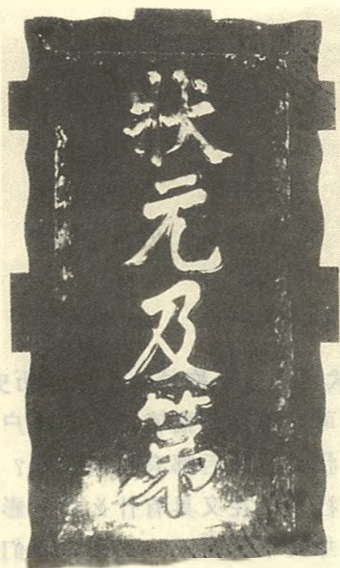 状元及第